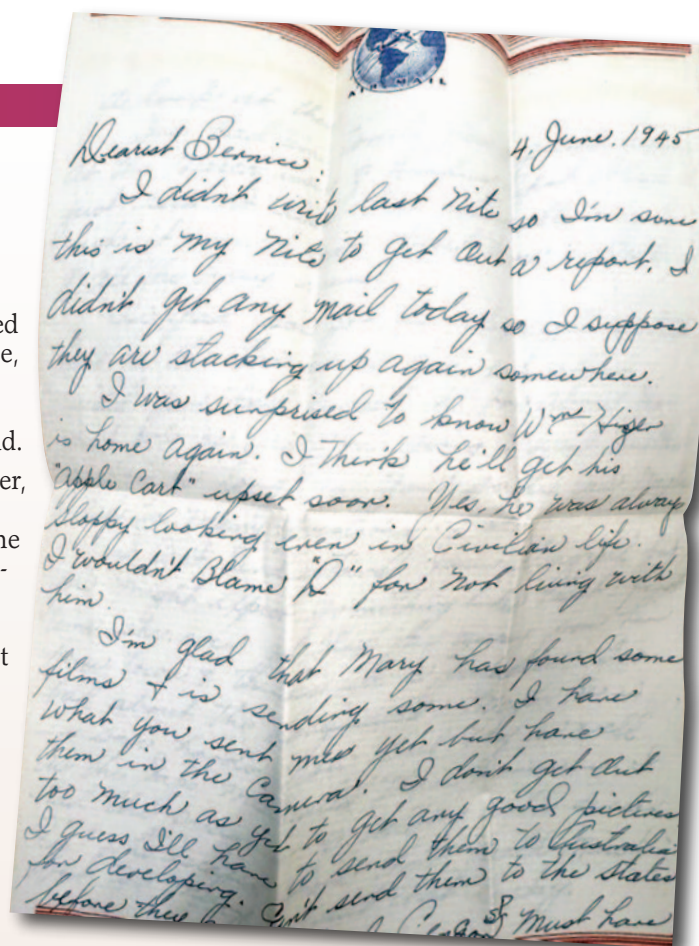 AIR MAIL
4. June. 1945
Dearest Bernice:
I didn't write last Nite so I'm sure
this is my Nite to get out a report. I
didn't get any mail today so I suppose
they are stacking up again somewhere.
I was surprised to know Wm
is home again. I think he'll get his
"Apple Cart" upset soon. Yes, he was always
sloppy looking even in Civilian life.
I wouldn't Blame "D" for not living with
him.
I'm glad that Mary has found some
films + is sending some. I have
what you sent me yet but have
them in the Camera. I don't get out
too much as yet to get any good pictures
I guess I'll have to send them to Australia
for developing. Can't send them to the States
before they Must have
ed
e,
d.
er,
ne
-
t